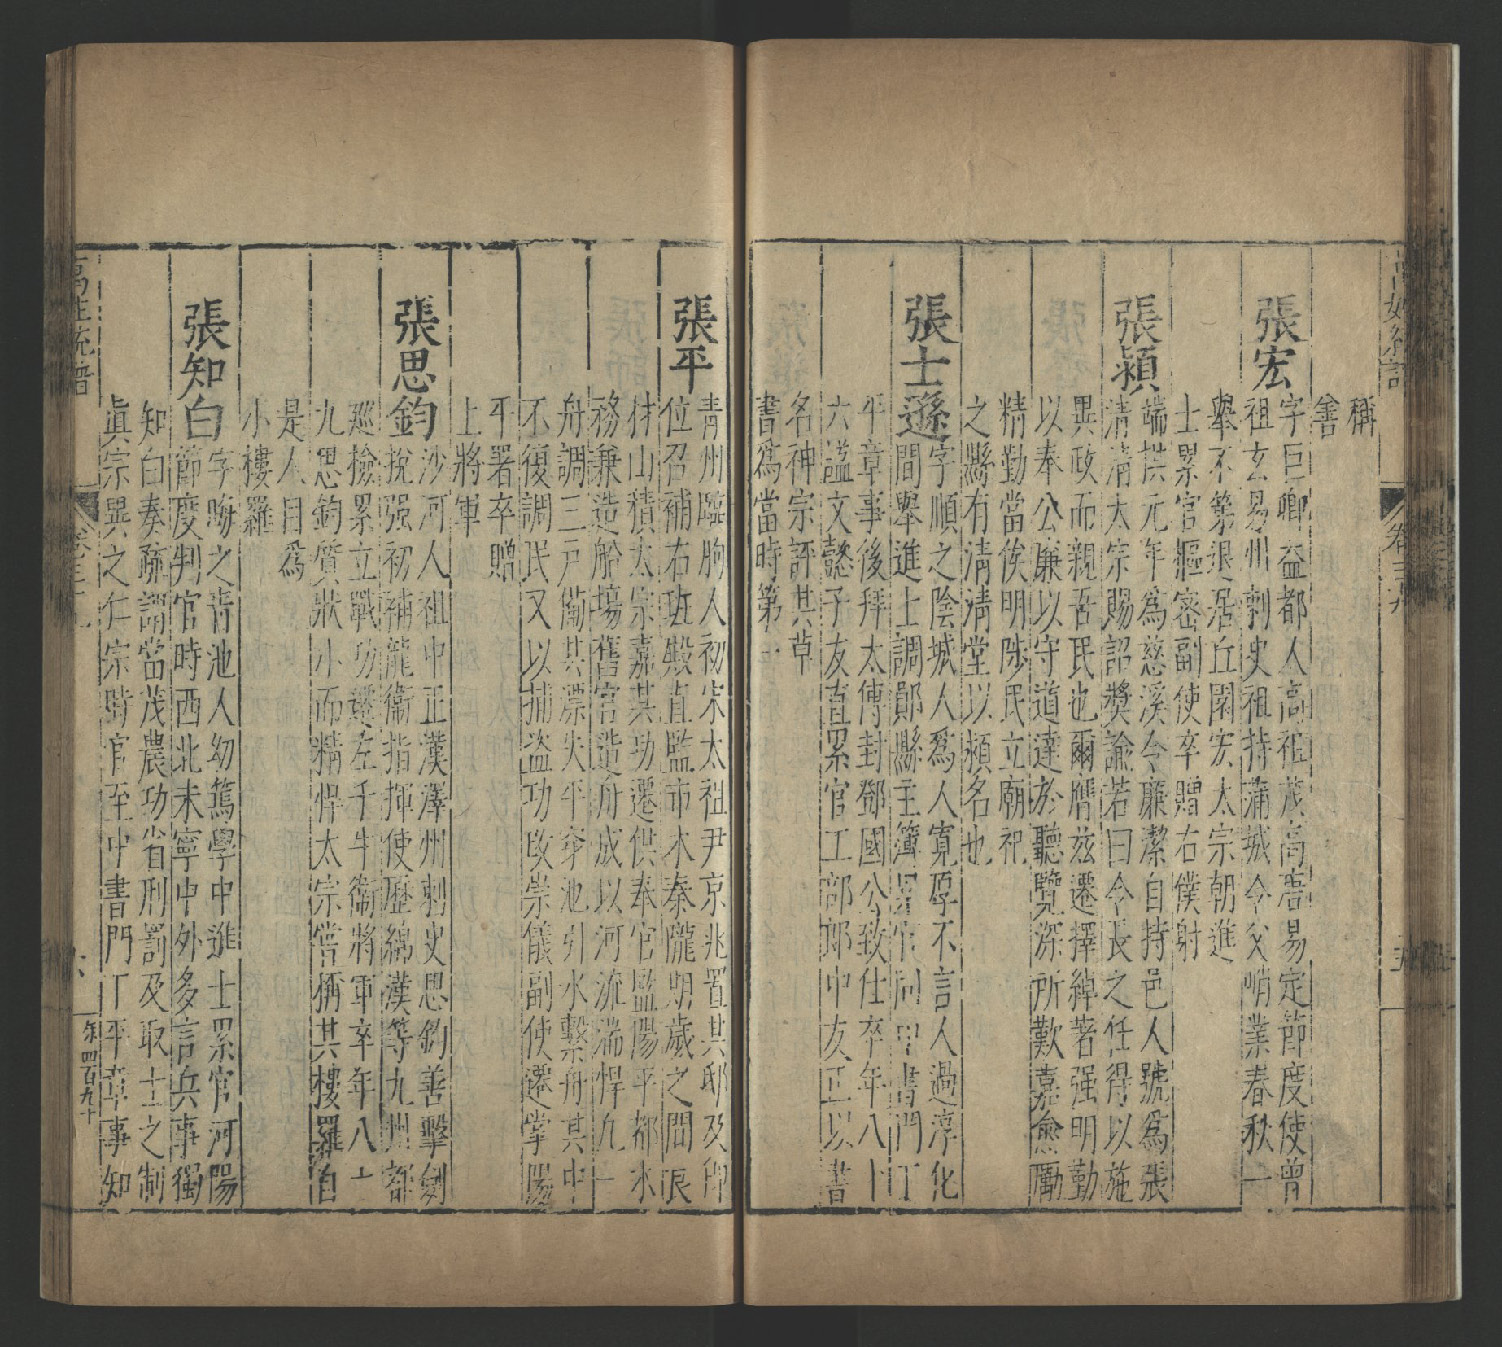 稱
舍
張宏
字巨卿益都人高祖茂高唐易定節度使曾
祖玄易州刺史祖持蒲城令父峭業春秋一
舉不第退居丘園宏太宗朝進
士累官樞密副使卒贈右僕射
張頴
端拱元年為慈溪令廉潔自持邑人號為張
清清太宗賜詔獎諭若曰令長之任得以施
異政而親吾民也爾膺兹遷擇綽著强明勤
以奉公廉以守道達於聽覽深所歎嘉僉勵
精勤當俟明陟民立廟祀
之縣有清清堂以頴名也
張士遜
字順之陰城人為人寛厚不言人過淳化
間舉進士調鄖縣主簿累官同中書門丁
平章事後拜太傅封鄧國公致仕卒年八十
六謚文懿子友直累官工部郎中友正以書
名神宗評其草
書爲當時第一
張平
青州臨朐人初宋太祖尹京兆置其邸及即
位召補右班殿直監市木秦隴朞歲之間良
材山積太宗嘉其功遷供奉官監陽平都木
務兼造船塲舊官造舟成以河流湍悍九一
舟調三戸備其漂失平穿池引水繫舟其中
不復調民又以捕盗功改崇儀副使遷掌陽
平署卒贈
上將軍
張思鈞
沙河人祖中正漢澤州刺史思鈞善擊劒
挽强初補龍衞指揮使歷綿漢等九州都
廵檢累立戰功遷左千牛衞將軍卒年八十
九思鈞質狀小而精悍太宗嘗稱其樓羅自
是人目爲
小樓羅
張知白
字晦之青池人幼篤學中進士累官河陽
節度判官時西北未寧中外多言兵事獨
知白奏疏謂當茂農功省刑罰及取士之制
眞宗異之仁宗時官至中書門丁平章事知
卷三十九
六
朱四百九十